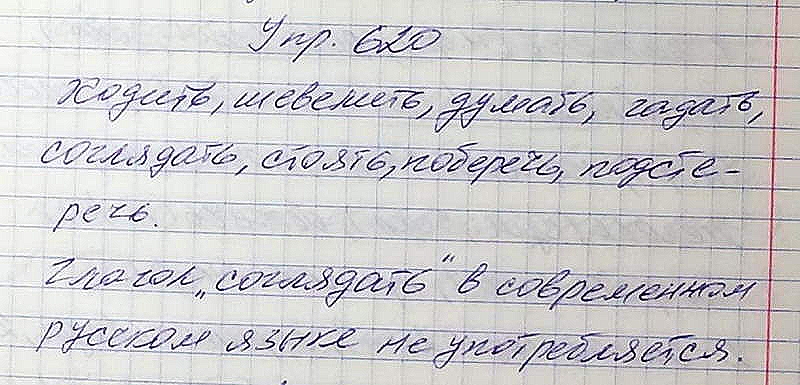 Упр. 620
Ходить, шевелить, думать, гадать,
соглядать, стоять, поберечь, подсте-
речь.
Глагол „соглядать" в современном
русском языке не употребляется.